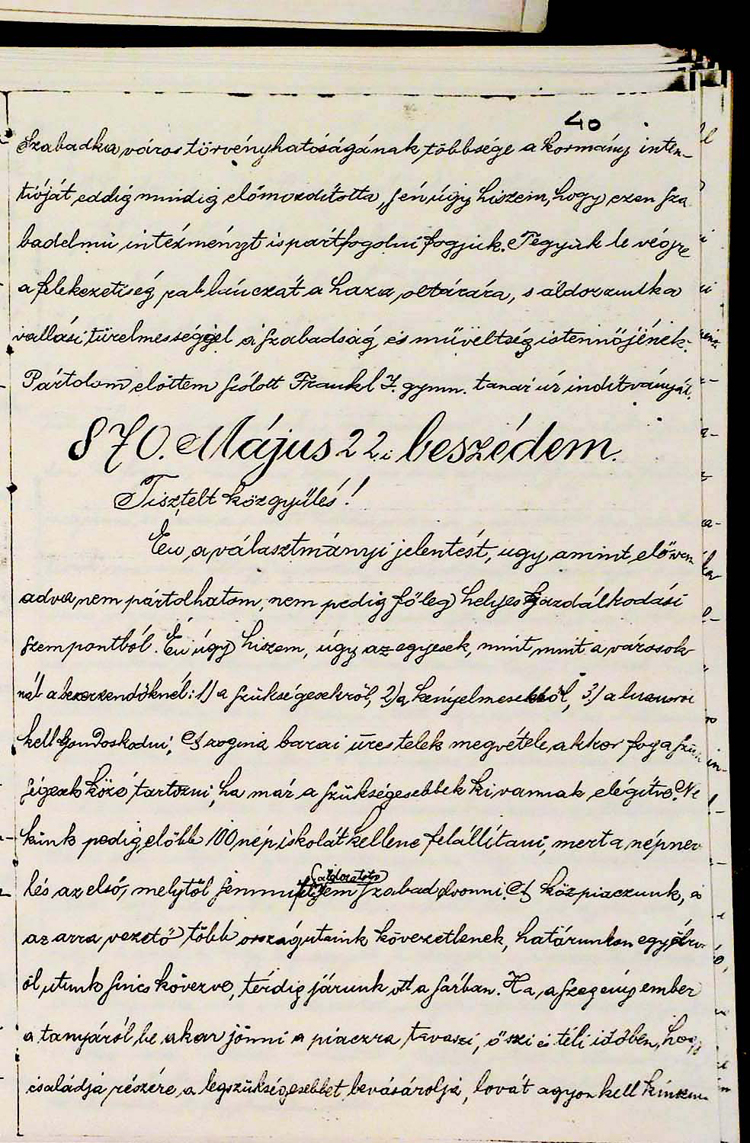 40
Szabadka város törvényhatóságának többsége a kormány inten-
tióját eddig mindig előmozdította, s én úgy hiszem, hogy ezen sza
badelmü intézményt is pártfogolni fogjuk. Tegyük le végre
a felekezetiség rablánczát a haza oltárára, s áldozzunk a
vallási türelmességgel a szabadság és műveltség istennőjének.
Pártolom előttem szólott Frankl I. gymn. tanár úr indítványát.
870. Május 22i beszédem.
Tisztelt közgyűlés!
Én a választmányi jelentést, ugy amint elő van
adva nem pártolhatom, nem pedig főleg helyes gazdálkodási
szempontból. Én úgy hiszem, úgy az egyesek, mint mint a városok
nál a beszerzendőknél: 1) a szükségesekről, 2) a kényelmesekről, 3) a luxusról
kell gondoskodni, A barai üres telek megvétele akkor fog a szük
ségesek közé tartozni, ha már a szükségesebbek ki vannak elégítve. Ne
künk pedig előbb 100 népiskolát kellene felállítani, mert a népneve
lés az első, melytől semmi áldozatot sem szabad vonni. A közpiaczunk, s
az arra vezető több országutaink kövezetlenek, határunkon egy
öl utunk sincs kövezve, térdig járunk ott a sárban. Ha a szegény ember
a tanyáról be akar jönni a piaczra tavaszi, őszi és téli időben, hogy
családja részére a legszükségesebbet bevásárolja, lovát agyon kell kínozni